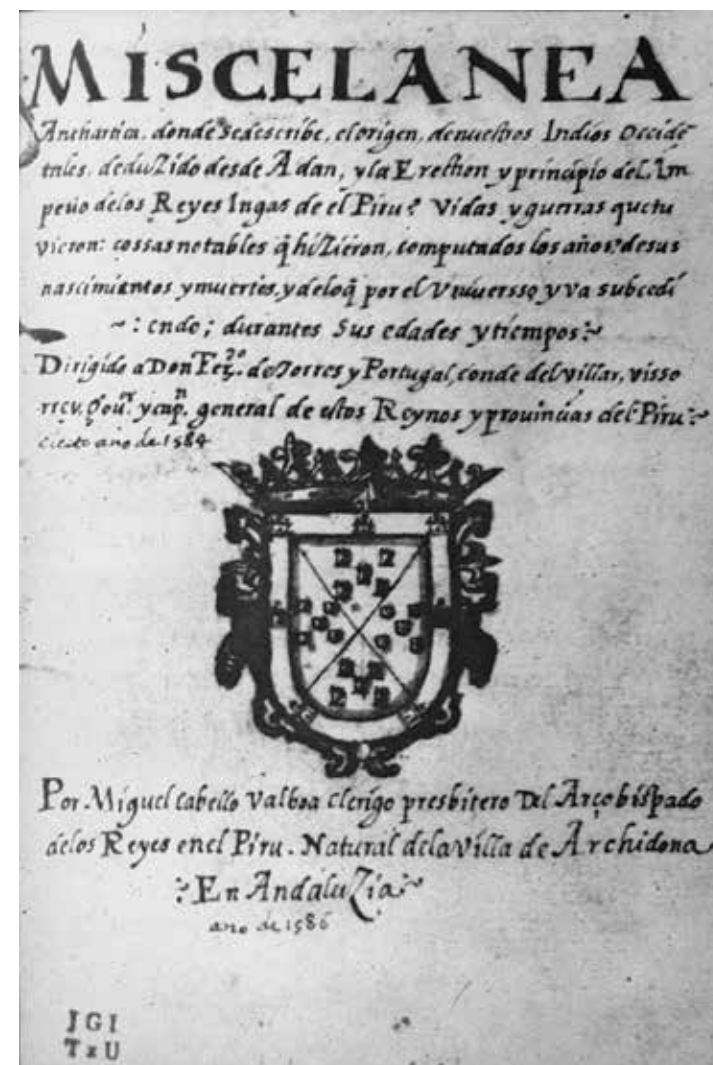 MISCELANEA
Anthartica. donde se describe, el origen, de nuestros Indios Occidē
tales, deduZido desde Adan, y la Erection y principio del, Im
perio de los Reyes Ingas de el Piru: Vidas y guerras que tu
vieron: cossas notables q̄ hiZieron, computados los años: de sus
nascimientos y muertes, y de lo q̄ por el Universso, y va subcedi
~: endo; durantes Sus edades y tiempos:~
Dirigido a Don de Torres y Portugal, conde del villar, visso
rrey, y capn. general de estos Reynos y prouincias del Piru:~
año de 1584
Por Miguel Cabello Valboa clerigo presbitero Del Arçobispado
de los Reyes en el Piru. Natural de la Villa de Archidona
:~ En AndaluZia:~
ano de 1586
JGI
TxU